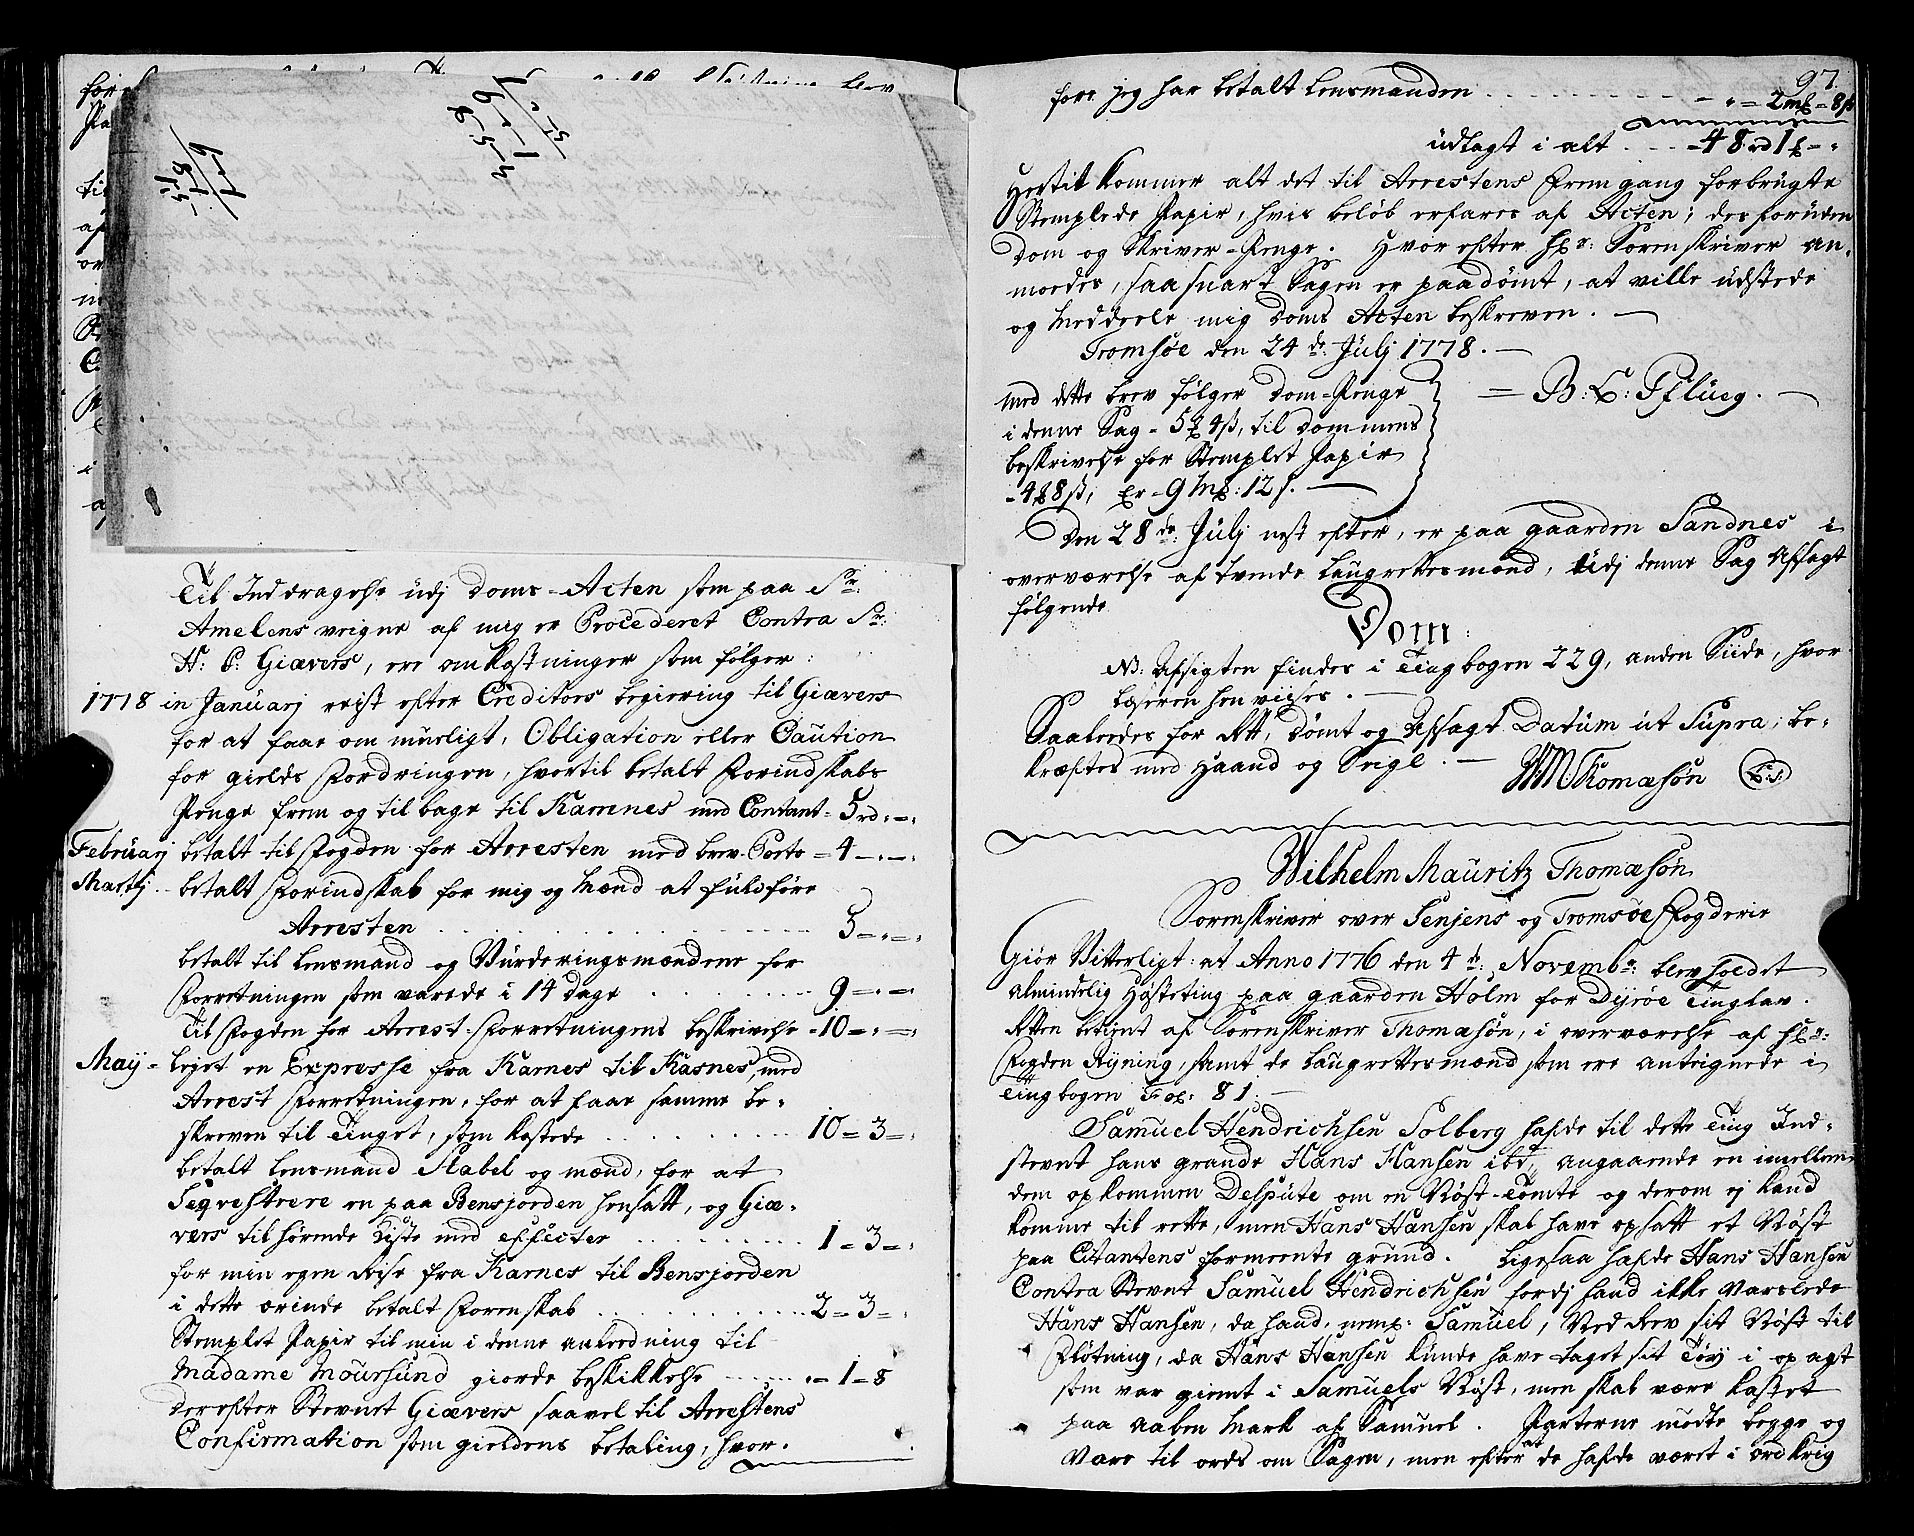 Til Inddragelse udj Doms-Acten som paa Sr:
Amelens veigne af mig er Procederet Contra Sr:
H: P: Giævers, ere omkostninger som følger:
1778 in Januarj reist efter Creditors begiering til Giævers
for at faae om mueligt, Obligation eller Caution
for gields Fordringen, hvortil betalt Forindskabs
Penge frem og tilbage til Karnnes med Contant = 5 rd = " = "
Februarj betalt til Fogden for Arresten med brev-Porto = 4 - " - "
Martij betalt Forindskab for mig og Mænd at fuldføre
Arresten . . . 5 = " = "
betalt til Lensmand og Vurderingsmændene for
Forretningen som varede i 14 dage . . . 9 = " = "
Til Fogden for Arrest-Forretningens beskrivelse = 10 = " = "
Maij - lejet en Expresse fra Karnes til Kasnes, med
Arrest Forretningen, for at faae samme be-
skreven til Tinget, som kostede . . . 10 = 3 = "
betalt Lensmand Stabel og mænd, for at
Seqvestrere en paa Bensjorden hensatt, og Giæ-
vers tilhørende Kiste med effecter . . . 1 = 3 = "
for min egen Reise fra Karnes til Bensjorden
i dette ærinde betalt Forenskab . . . 2 = 3 = "
Stemplet Papir til min i denne anledning til
Madame Moursund giorde beskikkelse . . . " = 1 = 8
derefter Stevnet Giævers saavel til Arrestens
Confirmation som gieldens betaling, hvor-
97.
fore jeg har betalt Lensmanden . . . " = 2 mk = 8 s
udlagt i alt . . . = 48 rd 1 mk = "
Hertil kommer alt det til Arrestens Fremgang forbrugte
Stemplede Papir, hvis beløb erfares af Acten; desforuden
Dom og Skriver-Penge. Hvorefter Hr: Sorenskriver an-
modes, saa snart Sagen er paadømt, at ville udstede
og meddeele mig Doms Acten beskreven. —
Tromsøe den 24 de: Julj 1778. —
Med dette brev følger Dom-Penge = B: C: Pflueg. —
i denne Sag - 5 mk 4 s, til Dommens
beskrivelse for Stemplet Papir
- 4 mk 8 s, er - 9 mk: 12 s. —
Den 28 de: Julj nest efter, er paa gaarden Sandnes i
overværelse af tvende Laugrettesmænd, udj denne Sag Afsagt
følgende
Dom:
NB: Afsigten findes i Tingbogen 229, anden Siide, hvor
læseren henviises. —
Saaledes for Rett, Dømt og Afsagt Datum ut Supra; be-
kræftes med Haand og Seigl. — WMThomæsøn (L:S:)
Wilhelm Mauritz Thomæsøn
Sorenskriver over Senjens og Tromsøe Fogderie
Giør Vitterligt: at Anno 1776 den 4 d: Novembr: blev holdet
almindelig Høsteting paa gaarden Holm for Dyrøe Tinglav.
Retten betient af Sorenskriver Thomæsøn, i overværelse af Hr:
Fogden Ryning, samt de Laugrettesmænd som ere anteignede i
Tingbogen Fol: 81. —
Samuel Hendrichsen Solberg hafde til dette Ting Ind-
stevnt hans grande Hans Hansen ibd., angaaende en imellem
dem opkommen Despute om en Nøst-Tomte og derom ej kand
komme til rette, men Hans Hansen skal have opsatt et Nøst
paa Citantens formeente grund. Ligesaa hafde Hans Hansen
Contra Stevnt Samuel Hendrichsen fordj hand ikke varslede
Hans Hansen, da hand, nempl: Samuel, Ned Rev sit Nøst til
Fløtning, da Hans Hansen kunde have taget sit Tøy i op agt
som var giemt i Samuels Nøst, men skal være kastet
paa aaben Mark af Samuel. Parterne mødte begge og
vare til ords om Sagen, men efter at de hafde været i ordkrig